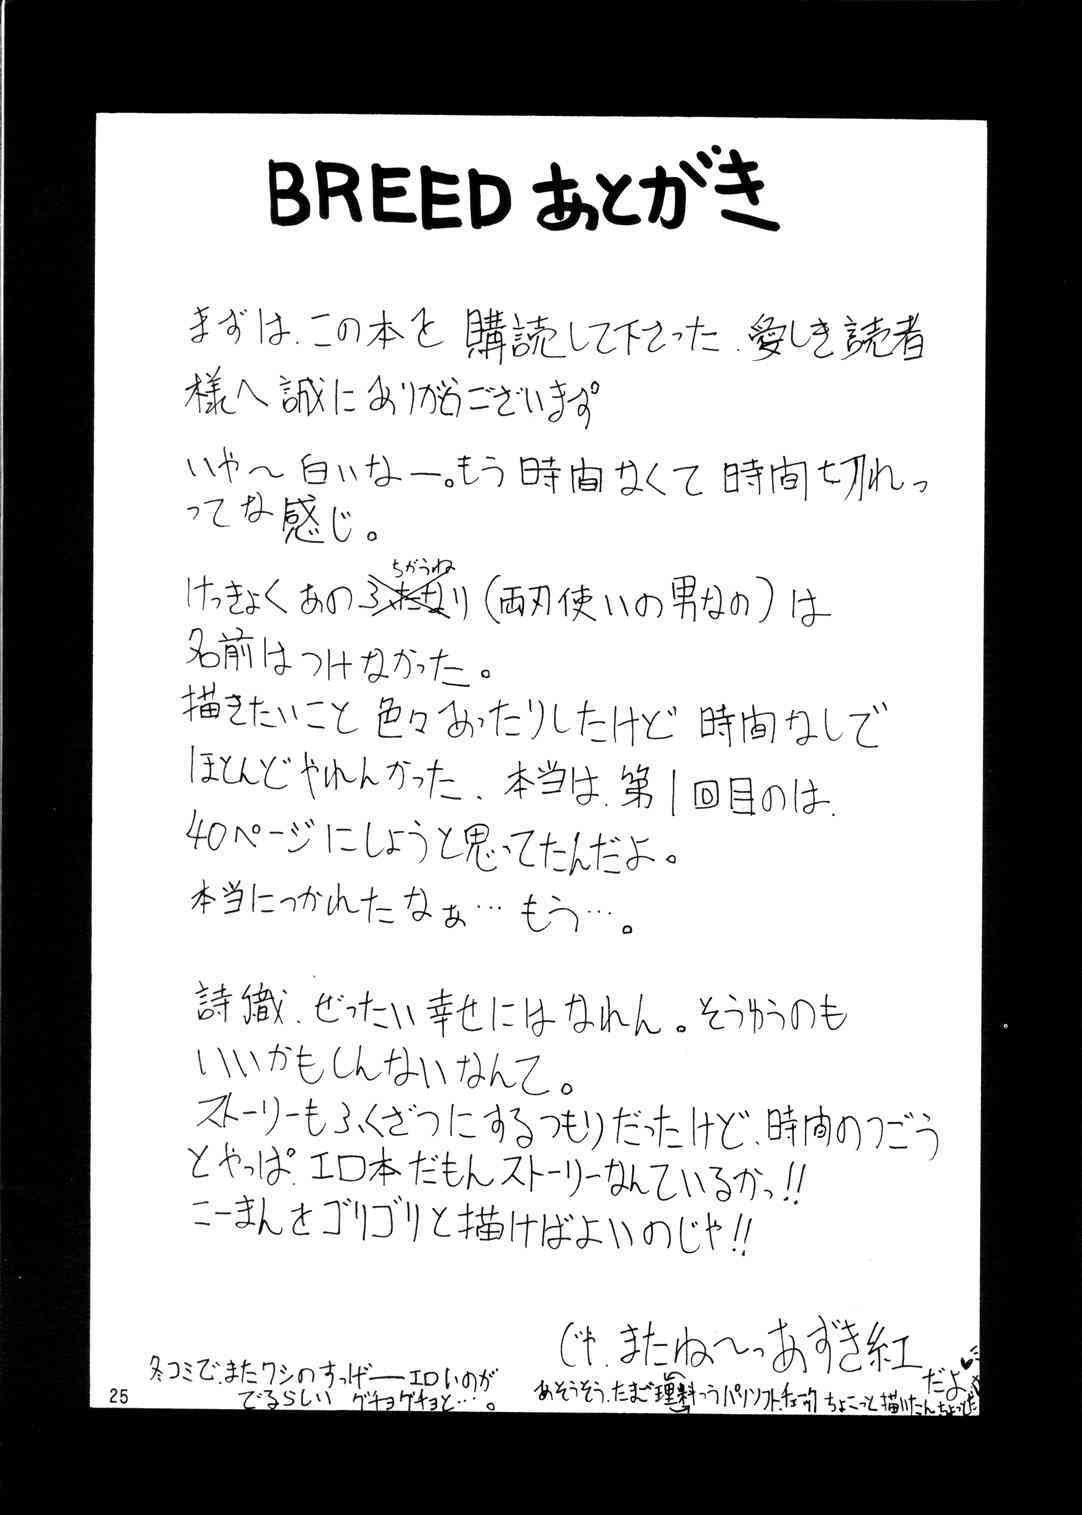 BREED あとがき
まずは、この本を購読して下さった、愛しき読者
様へ誠にありがとうございます。
いや〜白いなー。もう時間なくて時間切れっ
ってな感じ。
ちがうね
けっきょくあのふたなり(両刃使いの男なの)は
名前はつけなかった。
描きたいこと色々あったりしたけど時間なしで
ほとんどやれんかった、本当は、第1回目のは、
40ページにしようと思ってたんだよ。
本当につかれたなぁ…もう…。
詩織、ぜったい幸せにはなれん。そうゆうのも
いいかもしんないなんて。
ストーリーもふくざつにするつもりだったけど、時間のつごう
とやっぱ、エロ本だもんストーリーなんているかっ!!
こーまんをゴリゴリと描けばよいのじゃ!!
じゃ、またね〜っあずき紅
だよ
冬コミで、またワシのすっげーエロいのが
でるらしい グチョグチョと…。
あそうそう、たまご料理っつうパソソフト、チェック ちょこっと描いたんちょっとだ
25